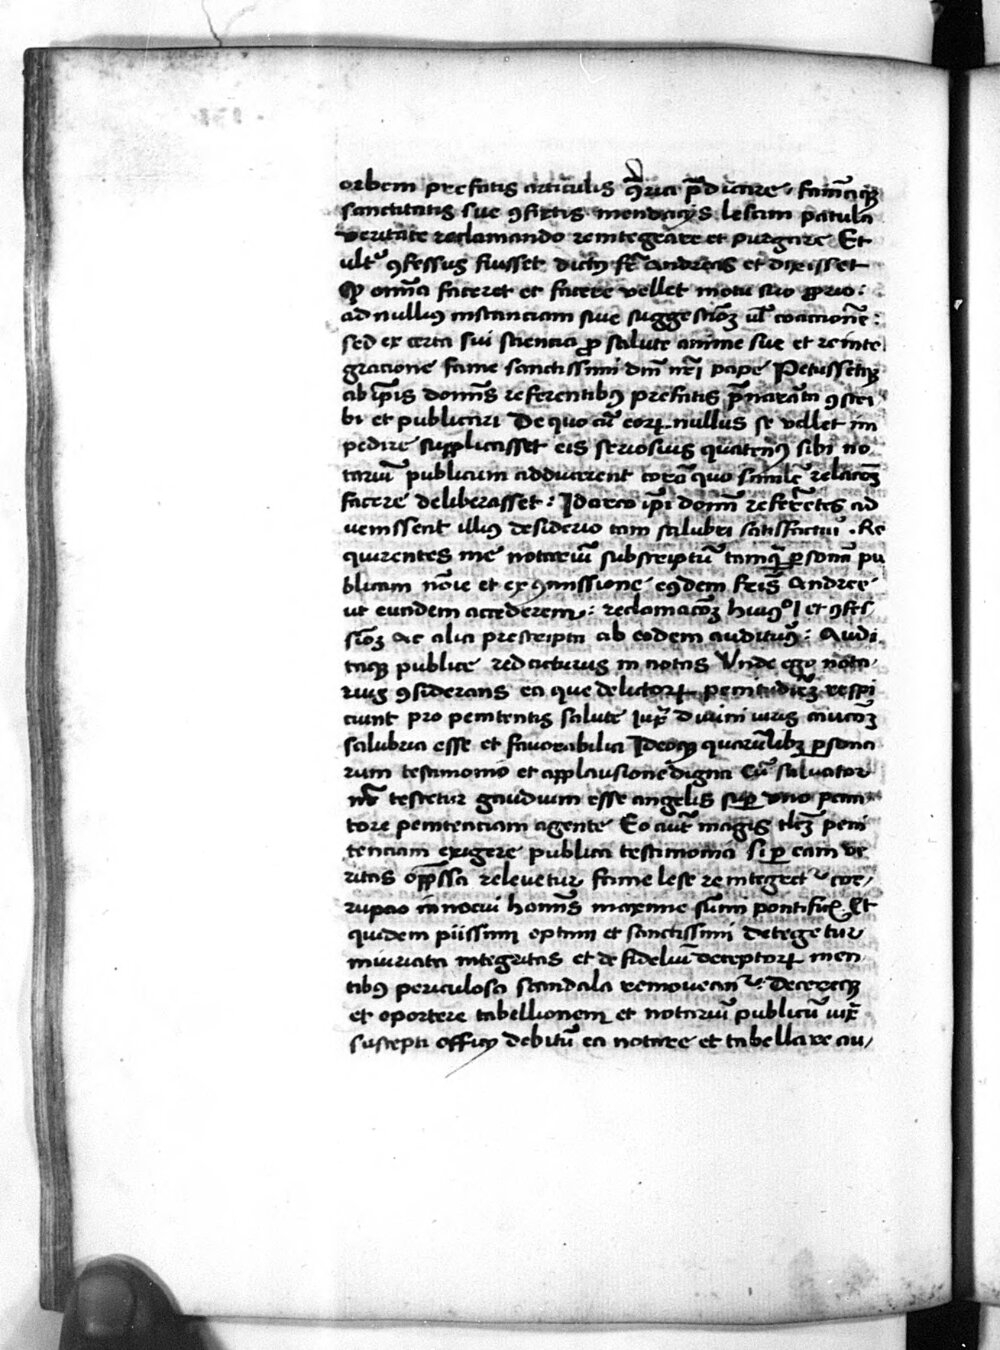 orbem prefatis articulis ꝯ̄ria p̄dicare · famāqꝫ
sanctitatis sue ꝯfictis mendacijs lesam patula
veritate reclamando reintegrare et purgare Et
ultͥ ꝯfessus fuisset dictꝰ fr̄ andreas et dixisset
ꝙ om̄ia faceret et facere vellet motu suo ꝓprio :
ad nullius instanciam siue suggestiōꝫ ul̄ coactionē :
sed ex certa sui sciencia ꝓ salute anime sue et reinte
gracione fame sanctissimi dn̄i nr̄i pape Petissetqꝫ
ab ip̄is dominis referentibꝰ prefatis p̄narrata ꝯscri
bi et publicari De quo cū eoꝝ nullus se vellet im
pedire supplicasset eis seriosius quatenꝰ sibi no
tariū publicum adducerent corā quo similē relacōꝫ
facere deliberasset : Idarco ip̄i domī referētes ad
uenissent illiꝰ desiderio tam salubri satisfacturi · Re
quirentes me notariū subscriptū tamqꝫ ꝑsonā pu
blicam nōie et ex ꝯmissione eiꝰdem fr̄is Andree
ut eundem accederem : reclamacōꝫ huiꝰmōi et ꝯfes
siōꝫ ac alia prescripta ab eodem auditurꝰ : Audi
taqꝫ publice redacturus in notas Vnde ego nota
rius ꝯsiderans ea que delictoꝝ penitudinē respi
ciunt pro penitentis salute iuxͣ diuini iuris
salubria esse et fauorabilia Ideoqꝫ quarūlibꝫ ꝑsona
rum testimonio et applausione digna Cū saluator
nr̄ testetur gaudium esse angelis suꝑ vno pecca
tore penitenciam agente Eo aut̄ magis peni
tenciam exigere publica testimonia si ꝑ eam ve
ritas opp̄ssa releuetur fame lese reintegret᷑ cor
rupcio innocui hominis maxime sūmi pontificꝭ Et
quidem piissimi optimi et sanctissimi detegetur
iniuriata integritas et de fideliū deceptoꝝ men
tibꝰ periculosa scandala remoueant᷑ : Decereqꝫ
et oportere tabellionem et notariū publicū iuxͣ
suscepti officij debitū ea notare et tabellare au